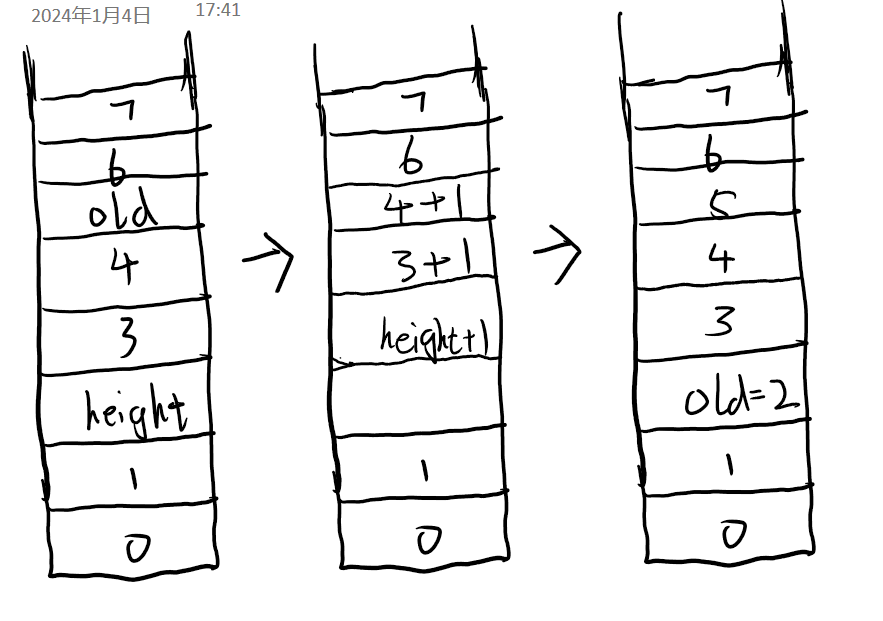 2024年1月4日 17:41
7
6
old
4
3
height
1
0
→
7
6
4+1
3+1
height+1
1
0
→
7
6
5
4
3
old=2
1
0